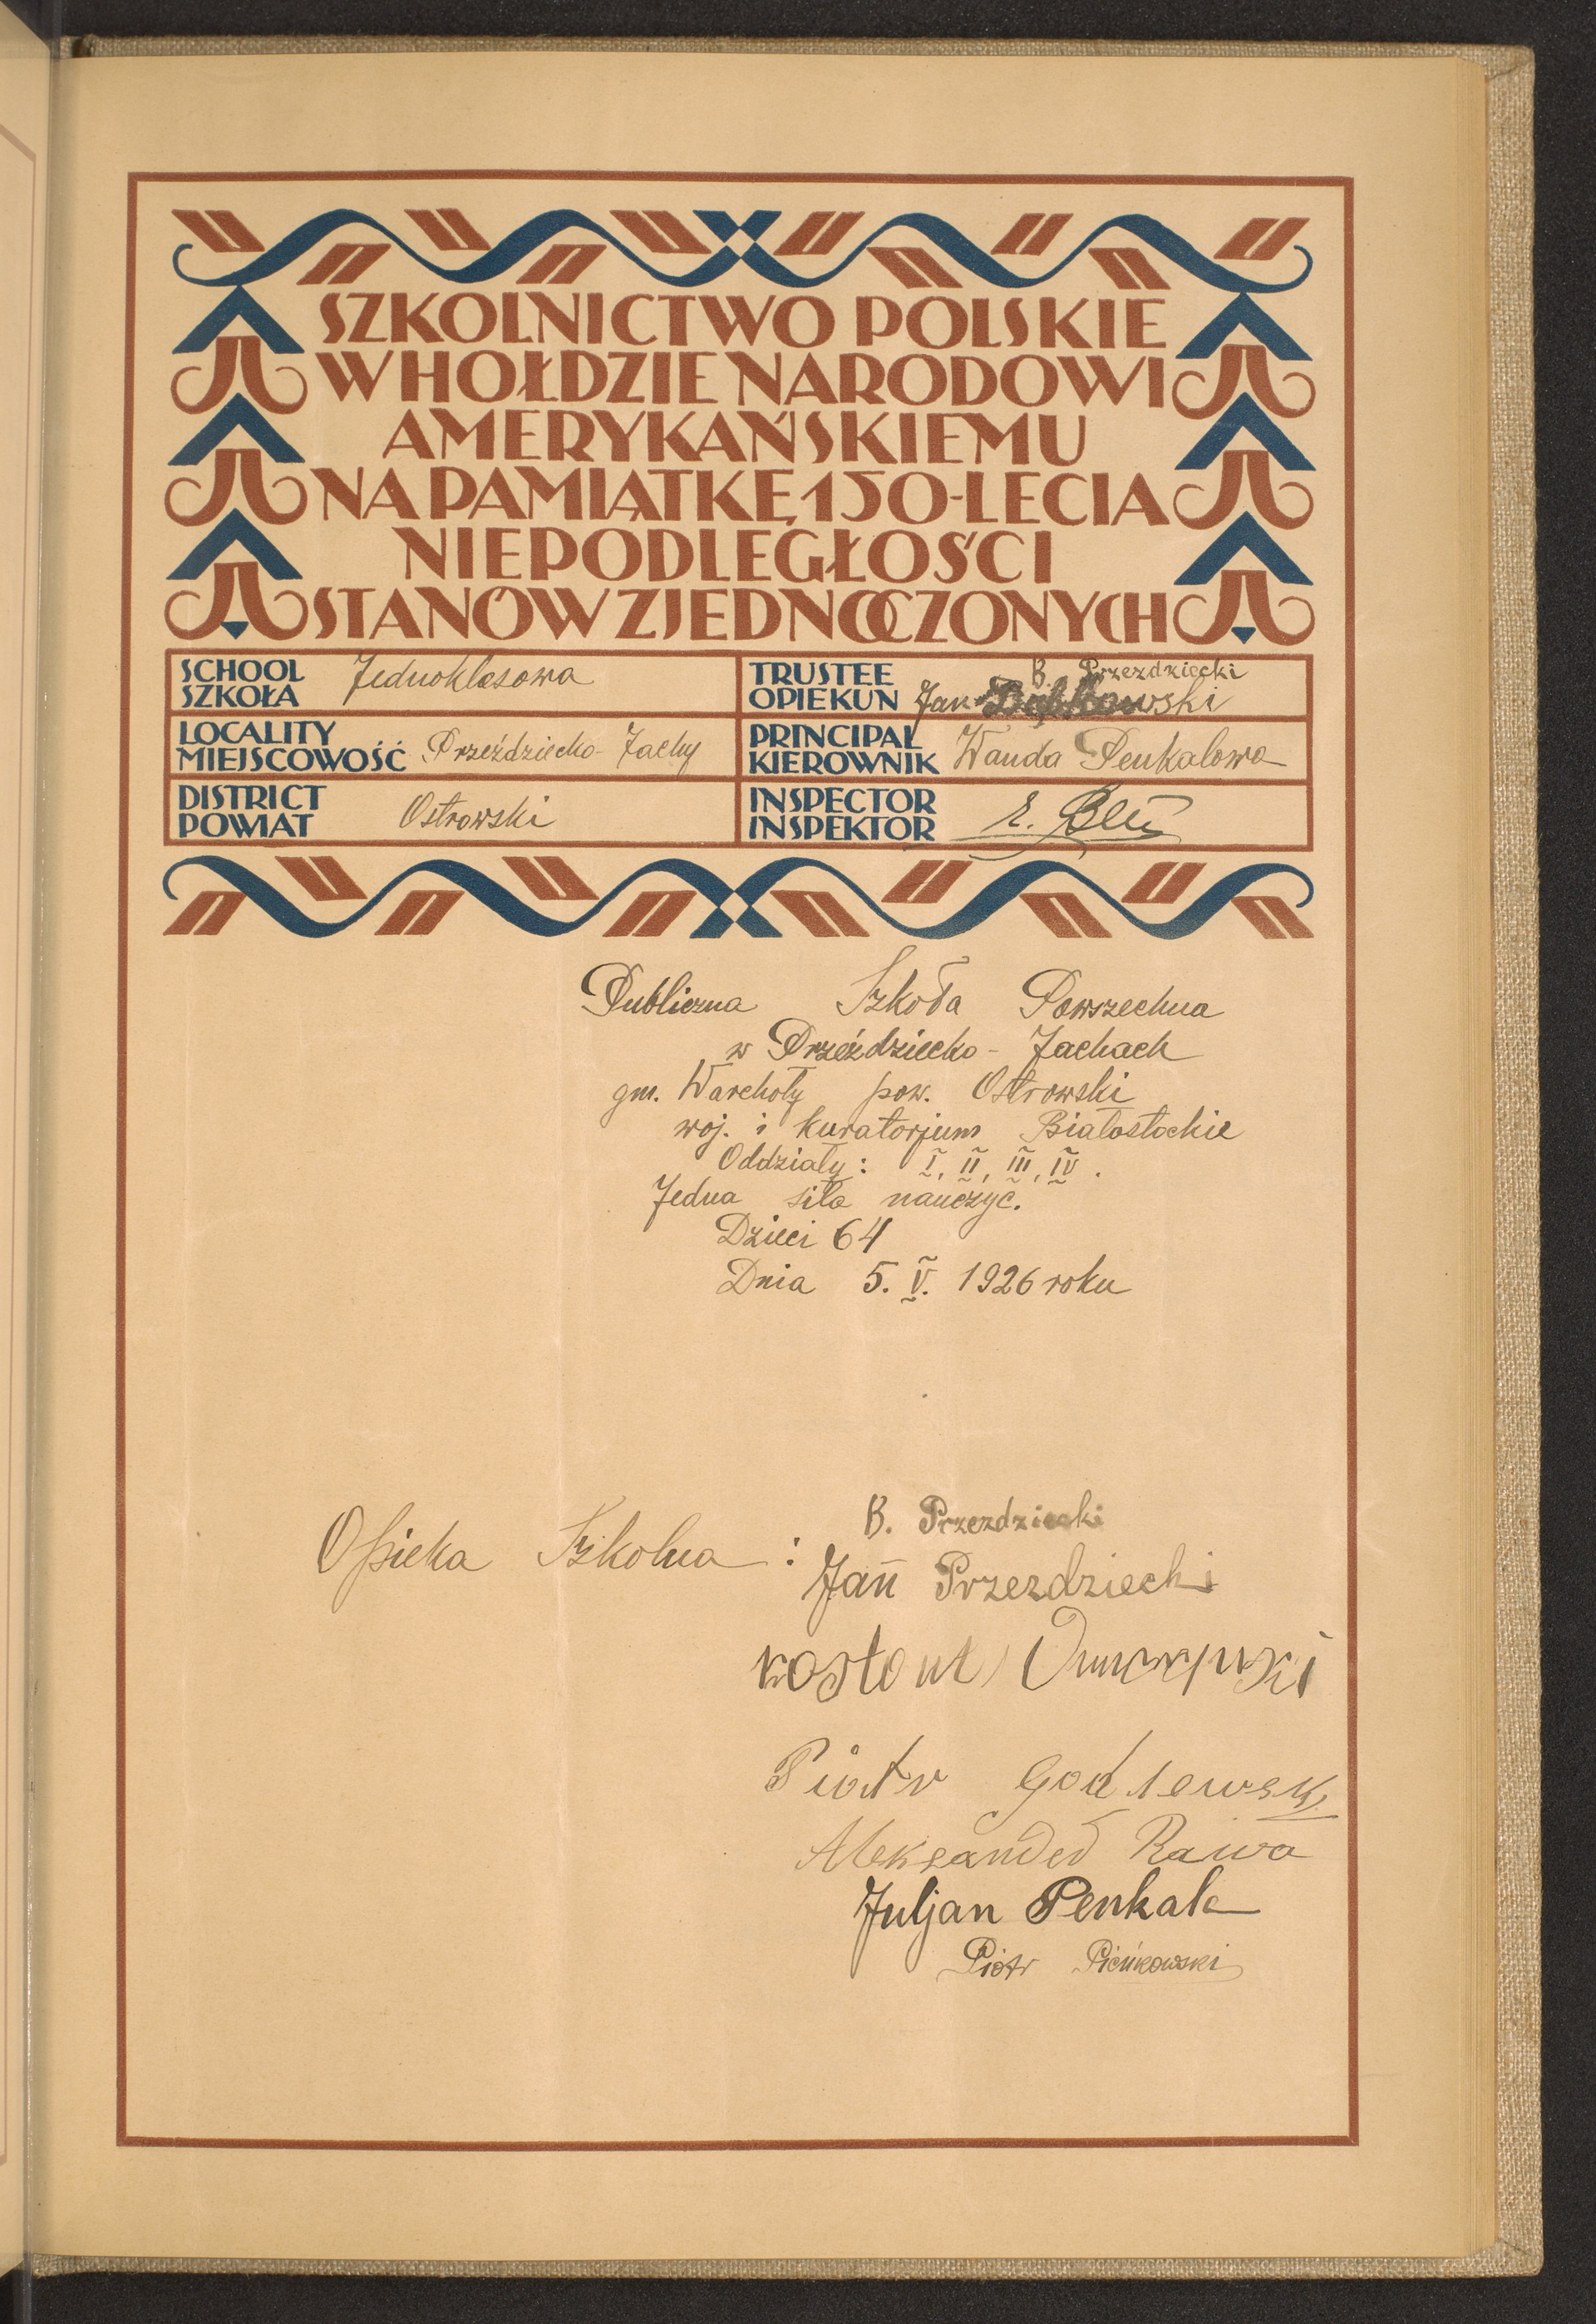 SZKOLNICTWO POLSKIE
W HOŁDZIE NARODOWI
AMERYKAŃSKIEMU
NA PAMIĄTKĘ 150-LECIA
NIEPODLEGŁOŚCI
STANÓW ZJEDNOCZONYCH
SCHOOL
SZKOŁA
Jednoklasowa
TRUSTEE
OPIEKUN
B. Przezdziecki
Jan
LOCALITY
MIEJSCOWOŚĆ
Przeździecko-Jachy
PRINCIPAL
KIEROWNIK
Wanda Penkalowa
DISTRICT
POWIAT
Ostrowski
INSPECTOR
INSPEKTOR
Publiczna Szkoła Powszechna
w Przeździecko-Jachach
gm. Warchoły pow. Ostrowski
woj. i kuratorjum Białostockie
Oddziały: I, II, III, IV.
Jedna siła nauczyc.
Dzieci 64
Dnia 5. V. 1926 roku
Opieka Szkolna:
B. Przezdziecki
Jan Przezdziecki
Piotr Godlewski
Aleksander Rawa
Juljan Penkala
Piotr Pieńkowski